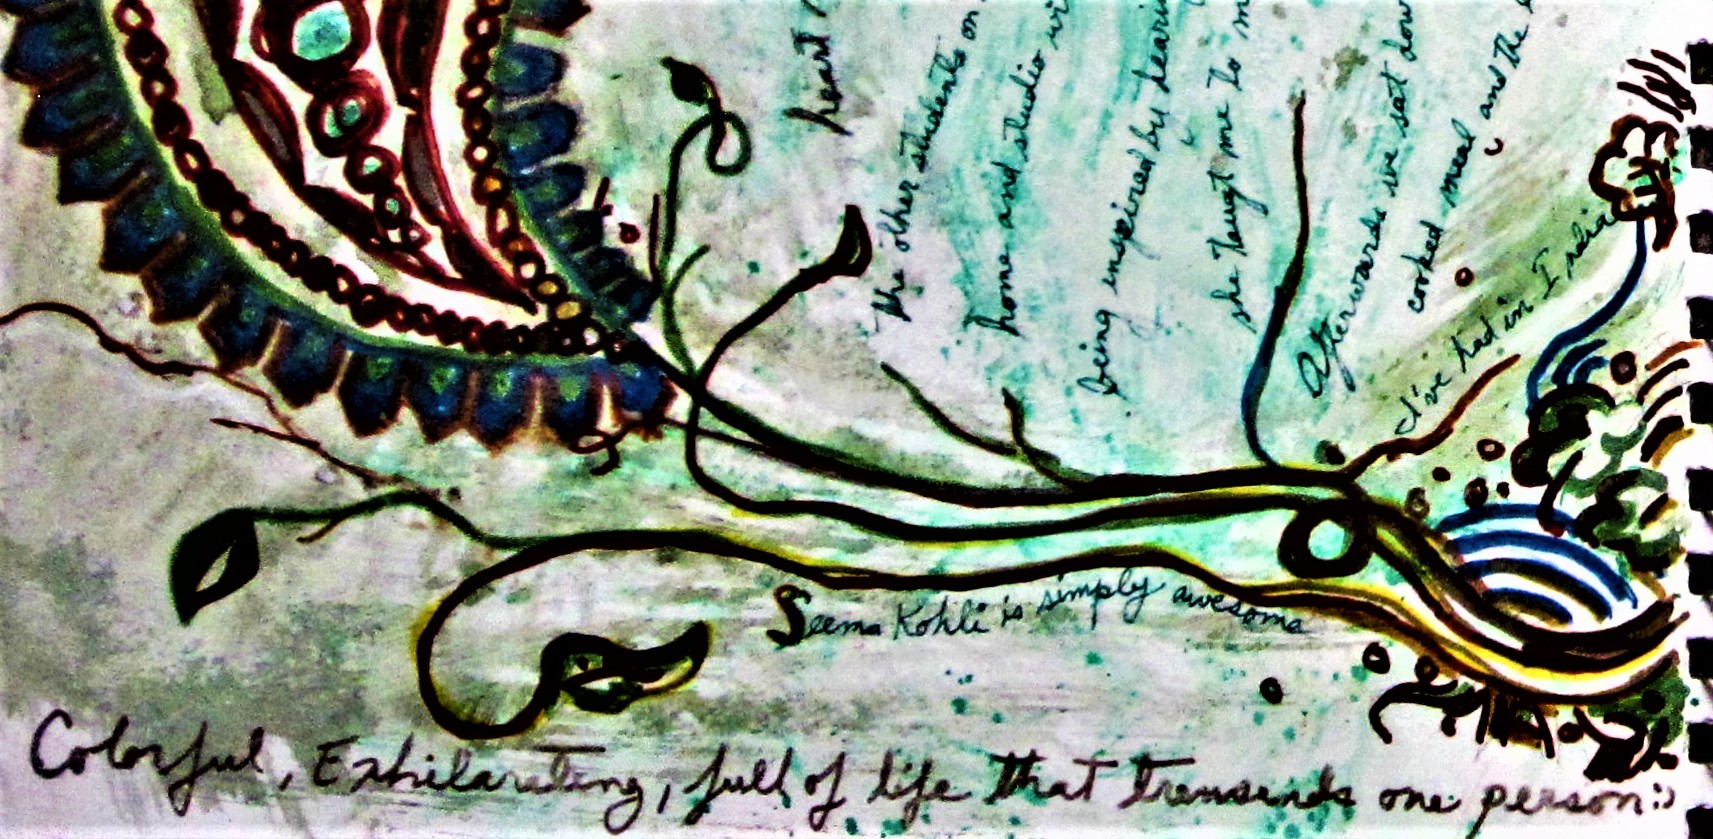 heart
the other students on
home and studio
being inspired by
she taugt me to
Afterwards we sat dow
cooked meal and the
I've had in I
Seema Kohli is simply awesome
Colorful, Exhilarating, full of life that transends one person:)